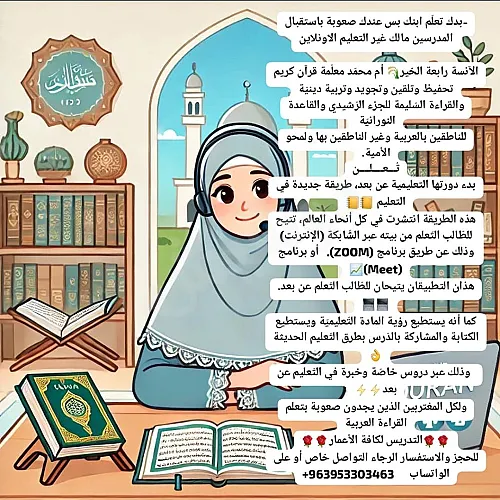 -بدك تعلّم ابنك بس عندك صعوبة باستقبال
المدرسين مالك غير التعليم الاونلاين
الآنسة رابعة الخير🌾 أم محمّد معلّمة قرآن كريم
تحفيظ وتلقين وتجويد وتربية دينيّة
والقراءة السّليمة للجزء الرّشيدي والقاعدة
النورانيّة
للناطقين بالعربية وغير الناطقين بها ولمحو
الأمية.
تُــعــلــن
بدء دورتها التعليمية عن بعد، طريقة جديدة في
التعليم
هذه الطريقة انتشرت في كل أنحاء العالم، تتيح
للطالب التعلم من بيته عبر الشّابكة (الإنترنت)
وذلك عن طريق برنامج (ZOOM)، أو برنامج
(Meet)📈
هذان التطبيقان يتيحان للطالب التعلم عن بعد.
كما أنه يستطيع رؤية المادة التعليميّة ويستطيع
الكتابة والمشاركة بالدرس بطرق التعليم الحديثة
👌
وذلك عبر دروس خاصّة وخبرة في التعليم عن
بعد⚡⚡
ولكل المغتربين الذين يجدون صعوبة بتعلم
القراءة العربية
🌹🌹التدريس لكافة الأعمار🌹🌹
للحجز والاستفسار الرجاء التواصل خاص أو على
الواتساب +963953303463